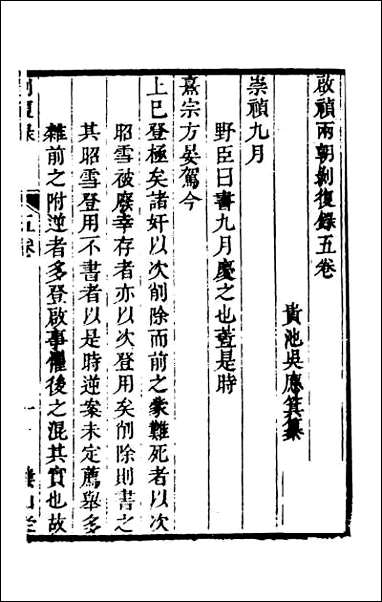 啟禎兩朝剝復錄五卷
貴池吳應箕纂
崇禎九月
野臣曰書九月慶之也蓋是時
熹宗方晏駕今
上已登極矣諸奸以次削除而前之蒙難死者以次
昭雪被廢幸存者亦以次登用矣削除則書之
其昭雪登用不書者以是時逆案未定薦舉多
雜前之附逆者多登啟事懼後之混其實也故
五卷
一